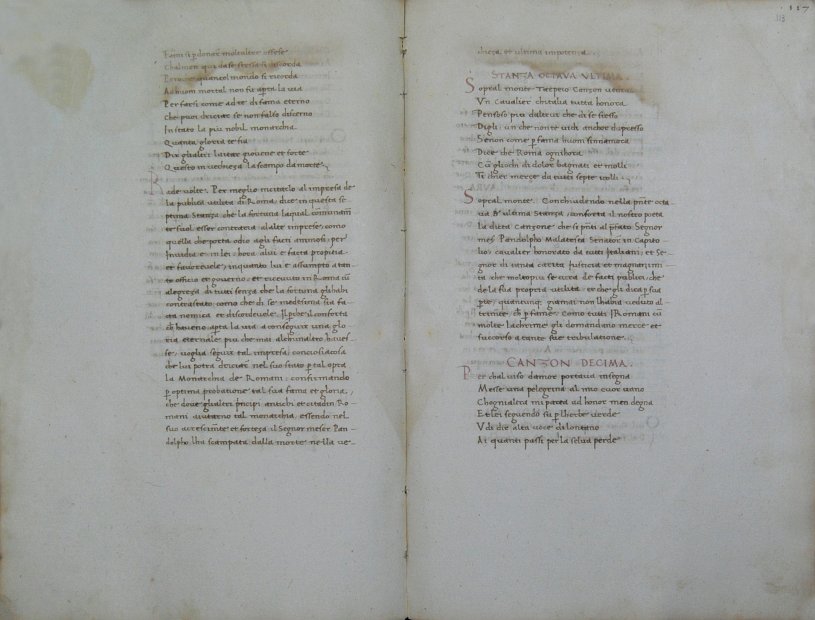 Fa mi si p donar molt altre offese
Chalmen qui da se stessa si discorda
Perche quantol mondo si ricorda
Ad huom mortal non fu aperta la via
Per farsi come ad te di fama eterno
Che puoi drizar se non falso discerno
In stato la piu nobil monarchia
Quanta gloria te fia
Dir glialtri laitar giovene et forte
Questo in vechieza la scampo da morte
Rade volte. Per meglio incitarlo al impresa de
la publica utilita di Roma, dice in questa se
ptima Stanza, che la fortuna laqual comunam̄
te suol esser contraria al alte imprese, como
quella che porta odio agli facti animosi, per
Invidia e in lei: hora a lui e facta propitia
et favorevole, inquanto lui e assumpto a tan
to officio et governo, et ricevuto in Roma cū
alegreza di tutti senza che la fortuna gli habi
contrastato, como che di se medesima sia fa
cta nemica et discordevole. Il pche il conforta
ch haveno apta la via a conseguire una glo
ria eternale piu che mai alchunaltro haves
se, voglia seguir tal impresa, conciosiacosa
che lui potra drizare nel suo stato p tal opra
La Monarchia de Romani: confirmando
p optima probatione tal sua fama et gloria,
che dove glialtri principi antichi et citadin Ro
mani aiutarno tal monarchia, essendo nel
suo acrescimēte et forteza, il Segnor meser Pan
dolpho, lha scampata dalla morte ne lla ve
117
113
chieza et ultima impotentia.
STANZA OCTAVA ULTIMA.
Sopral monte Tarpeio Canzon vedrai
Un Cavalier chitalia tutta honora
Pensoso piu daltrui che di se stesso
Digli, un che non te vidi anchor dapresso
Se non come p fama huom sinnamora
Dice che Roma ognihora
Cū gliochi di dolor bagnati et molli
Ti chier merze da tutti septe colli
Sopral monte. Conchiudendo nella pn̄te octa
va & ultima Stanza, conforta il nostro poeta
la dicta Canzone che si pn̄ti al p̄fato Segnor
mes Pandolpho Malatesta Senator in Capito
lio, cavalier honorato da tutti Italiani, et Se
gnor di tanta carita
ta che molto piu se cura de facti publici, che
de la sua propria utilita. et che gli dica p sua
pte, quantunq giamai non lhabia veduto al
tramente, ch p fama, Como tutti I Romani cū
molte lachrime gli domandano merce et
succorso a tante sue tribulatione.
CANZON DECIMA.
Per chal viso damor portava insegna
Mosse una pelegrina al mio cuor vano
Chognialtra mi parea ad honor men degna
Et lei seguendo su p lherbe verde
Udi die alta voce di lontano
Ai quanti passi per la selva perde